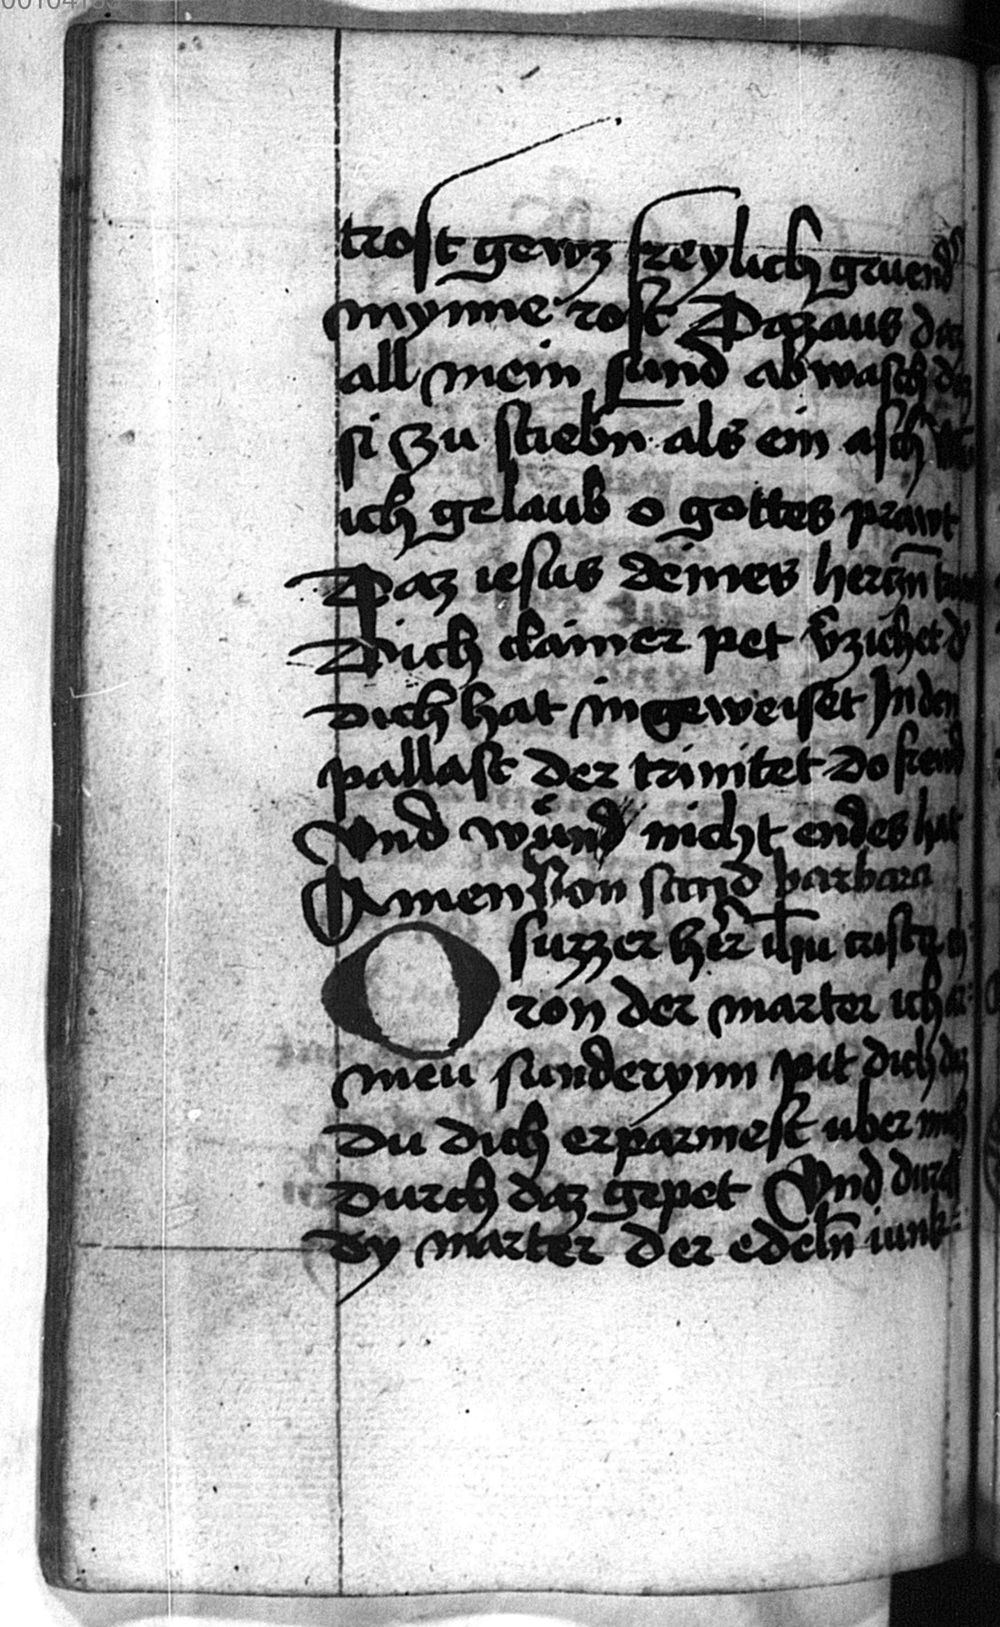 trost gewz freylich gruend
mynne rost Dazaus daz
all mein sund abwasch daz
si zu stiebn als ein asch
ich gelaub o gottes prawt
Daz iesus deines herczn
Dich clainer pet vzichet
dich hat ingeweiset In den
pallast der trinitet do freud
Vnd wund nicht endes hat
Amen Von sand barbara
O suzzer her ihu cristy
von der marter ich ar
meu sunderynn pit dich daz
du dich erparmest uber mich
durch daz gepet Vnd durch
dy marter der edeln iunk